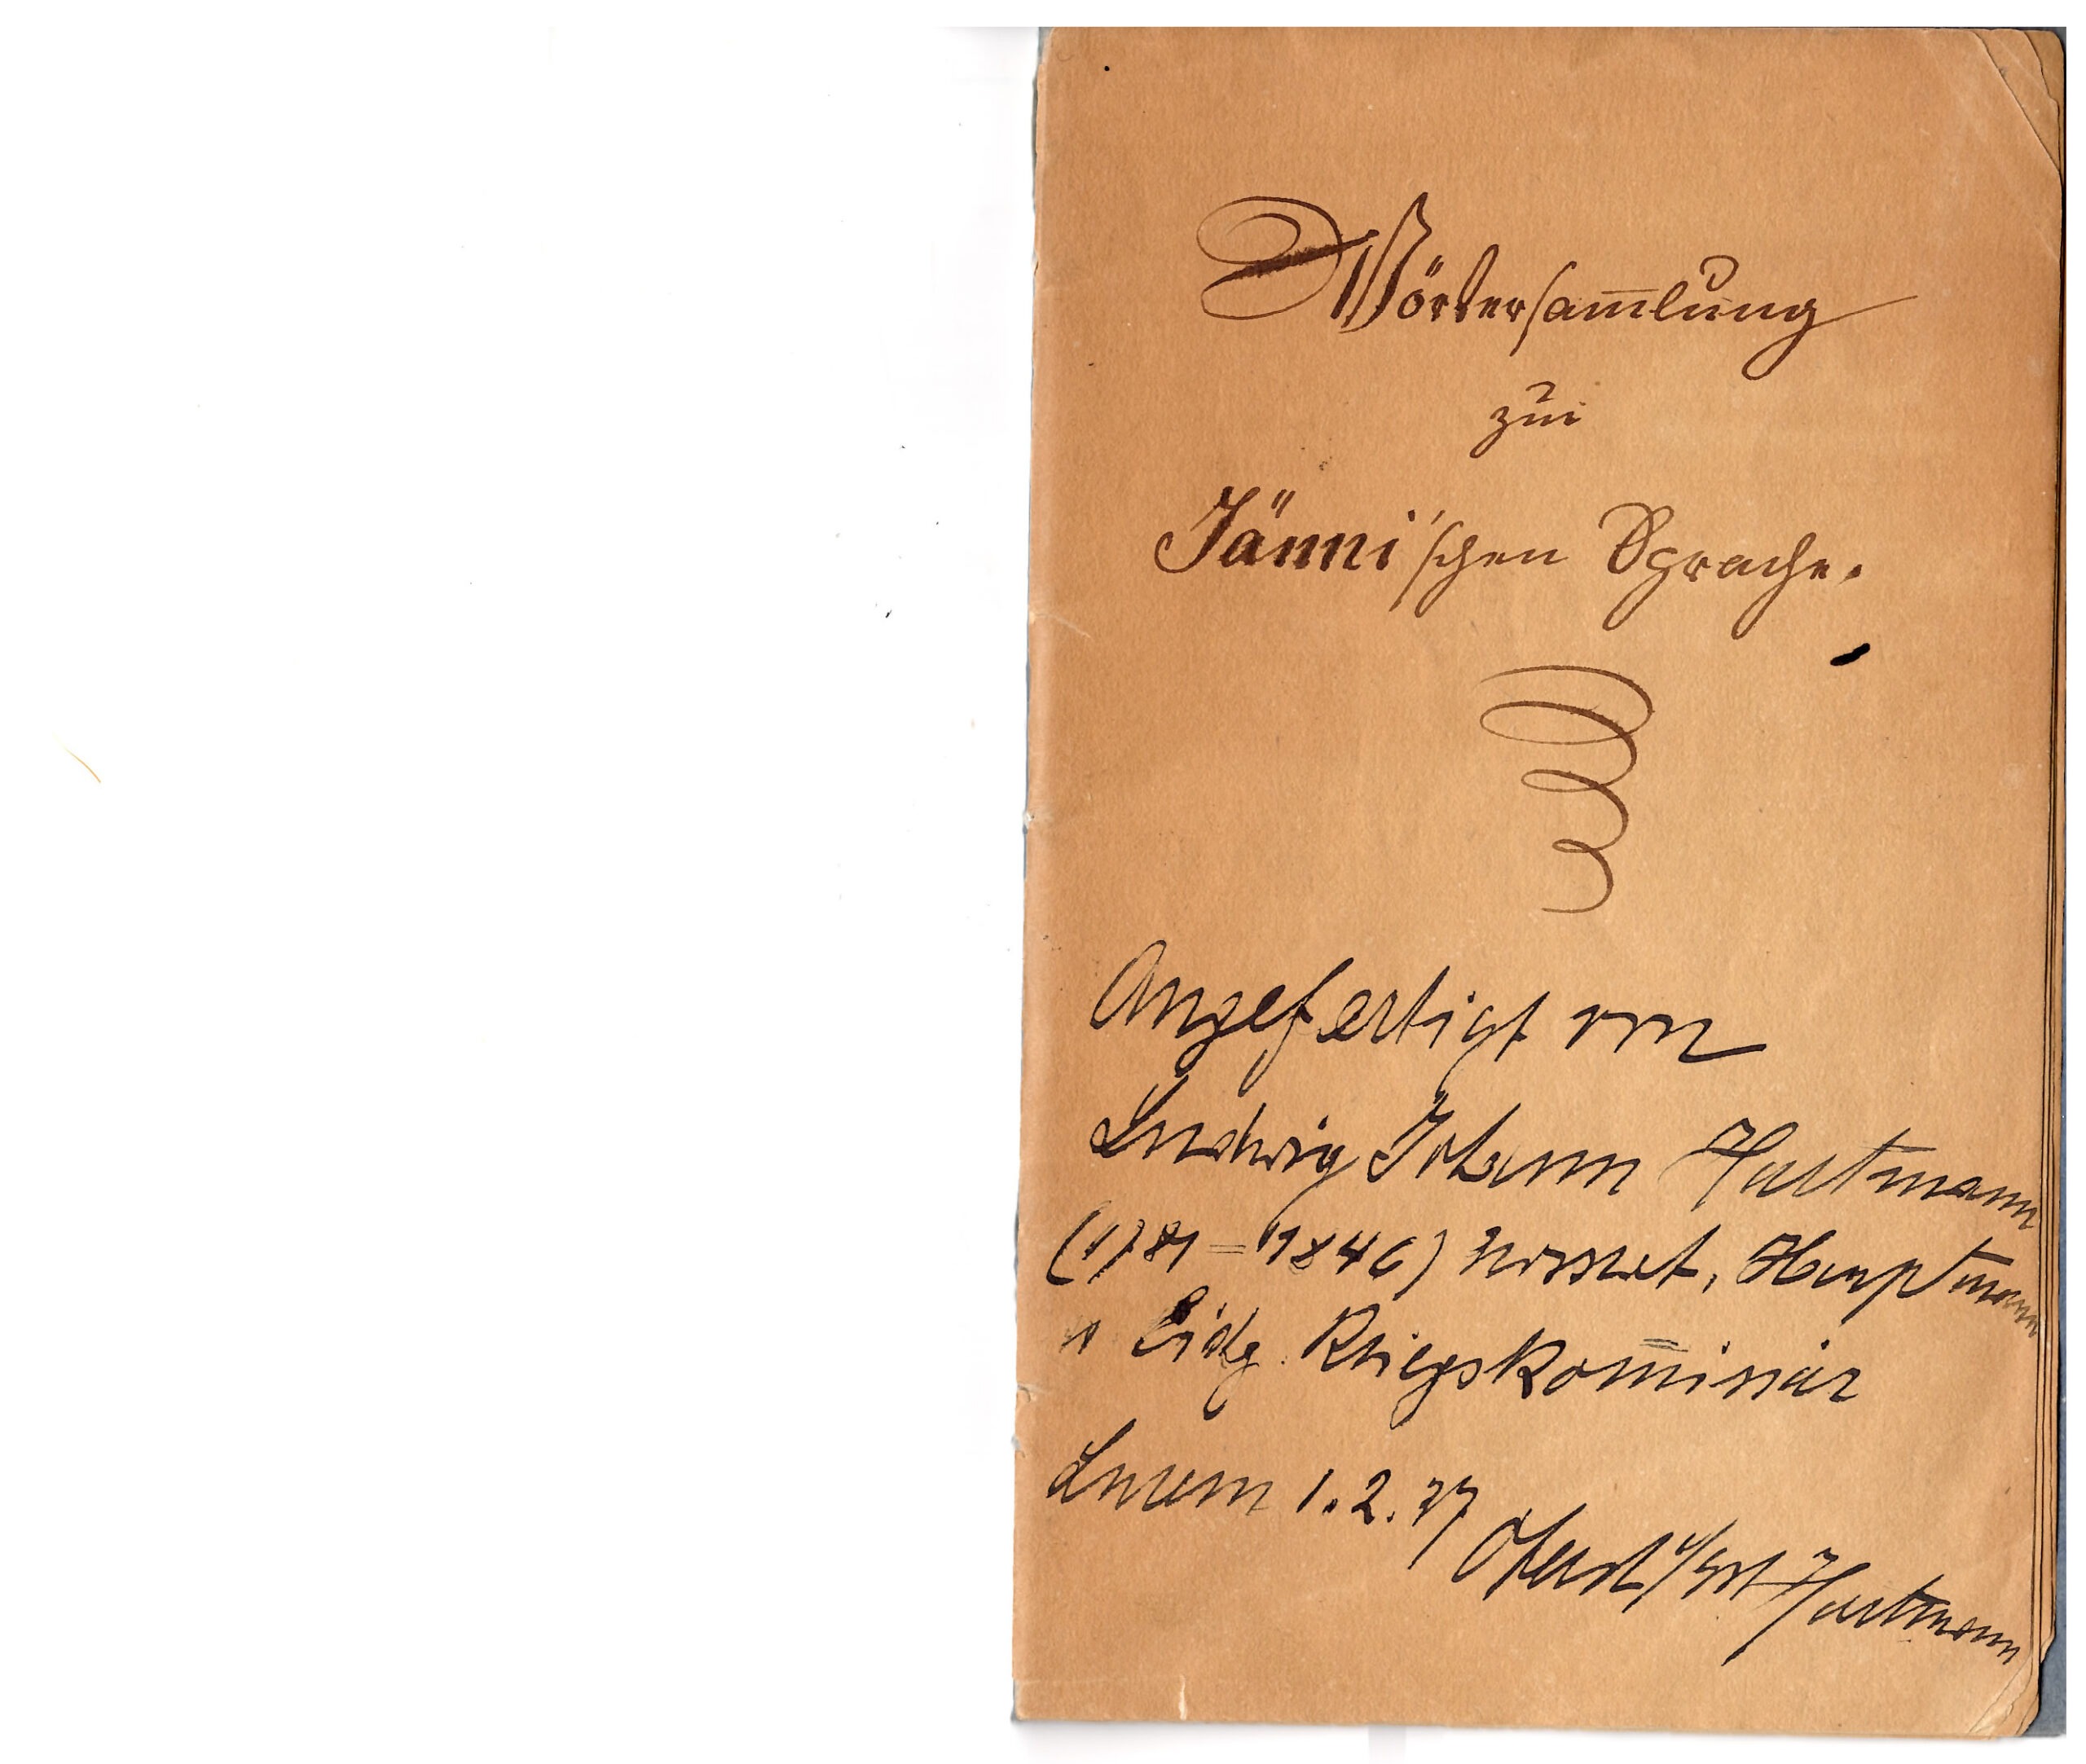 Wörtersam̅lung
zur
Jänni'schen Sprache.
Angefertigt von
Ludwig Johann Hartmann
(1781 = 1846) Hauptmann
Eidg. Kriegskom̅issär
Luzern 1.2.37
Oberst Hartmann